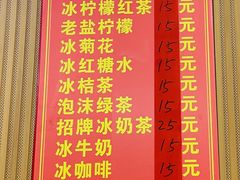 冰柠檬红茶 15元
老盐柠檬 15元
冰菊花 15元
冰红糖水 15元
冰桔茶 15元
泡沫绿茶 15元
招牌冰奶茶 25元
冰牛奶 15元
冰咖啡 15元